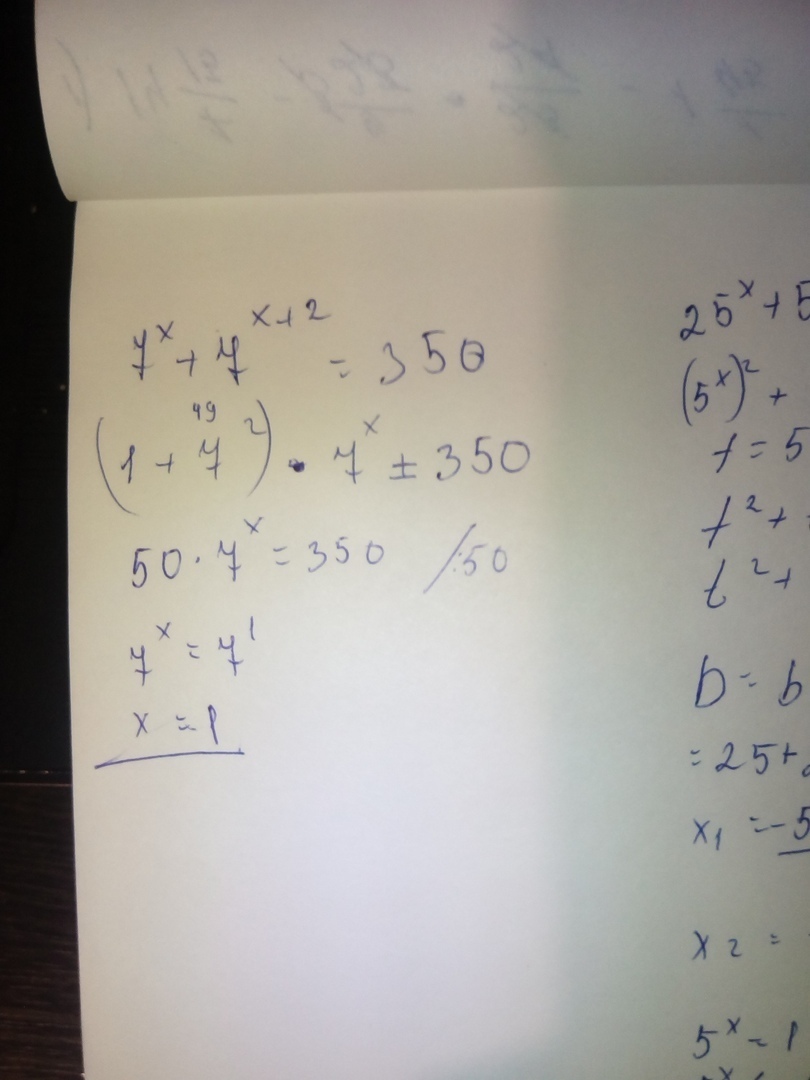 7^x + 7^{x+2} = 350
(1 + 7^2) • 7^x ± 350
49
50 · 7^x = 350 /:50
7^x = 7^1
x = 1
25^x + 5
(5^x)^2 +
t = 5
t^2 +
t^2 +
D = b
= 25 +
x1 = -5
x2 =
5^x = 1